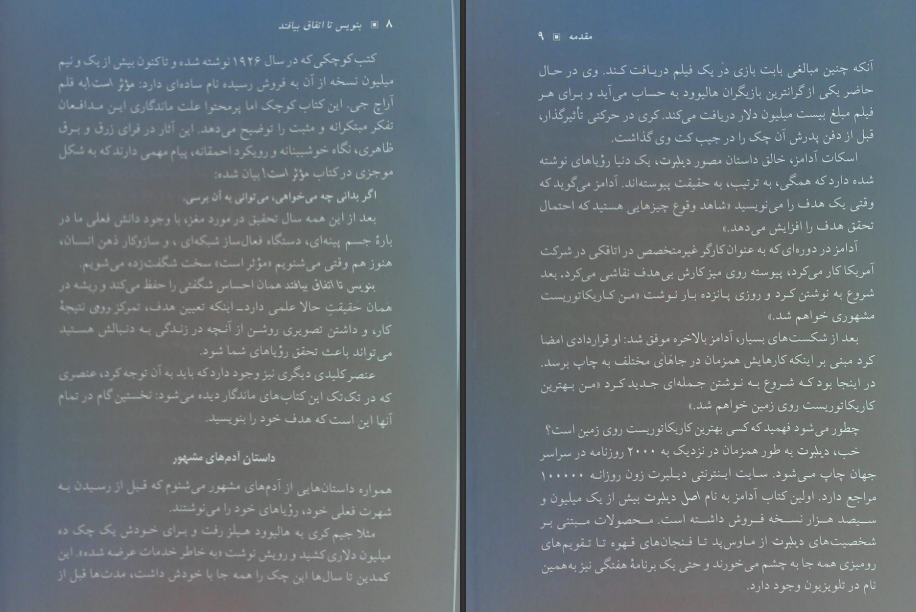 ۸ ▣ بنویس تا اتفاق بیافتد
کتب کوچکی که در سال ۱۹۲۶ نوشته شده و تاکنون بیش از یک و نیم
میلیون نسخه از آن به فروش رسیده نام ساده‌ای دارد: مؤثر است! به قلم
آراچ جی. این کتاب کوچک اما پرمحتوا علت ماندگاری این مدافعان
تفکر مبتکرانه و مثبت را توضیح می‌دهد. این آثار در فرای زرق و برق
ظاهری، نگاه خوشبینانه و رویکرد احمقانه، پیام مهمی دارند که به شکل
موجزی در کتاب مؤثر است! بیان شده:
اگر بدانی چه می‌خواهی، می‌توانی به آن برسی.
بعد از این همه سال تحقیق در مورد مغز، با وجود دانش فعلی ما در
بارهٔ جسم پینه‌ای، دستگاه فعال‌ساز شبکه‌ای، و سازوکار ذهن انسان،
هنوز هم وقتی می‌شنویم «مؤثر است» سخت شگفت‌زده می‌شویم.
بنویس تا اتفاق بیافتد همان احساس شگفتی را حفظ می‌کند و ریشه در
همان حقیقتِ حالا علمی دارد_اینکه تعیین هدف، تمرکز روی نتیجهٔ
کار، و داشتن تصویری روشن از آنچه در زندگی به دنبالش هستید
می‌تواند باعث تحقق رؤیاهای شما شود.
عنصر کلیدی دیگری نیز وجود دارد که باید به آن توجه کرد، عنصری
که در تک‌تک این کتاب‌های ماندگار دیده می‌شود: نخستین گام در تمام
آنها این است که هدف خود را بنویسید.
داستان آدم‌های مشهور
همواره داستان‌هایی از آدم‌های مشهور می‌شنوم که قبل از رسیدن به
شهرت فعلی خود، رؤیاهای خود را می‌نوشتند.
مثلا جیم کری به هالیوود هیلز رفت و برای خودش یک چک ده
میلیون دلاری کشید و رویش نوشت «به خاطر خدمات عرضه شده». این
کمدین تا سال‌ها این چک را همه جا با خودش داشت، مدت‌ها قبل از
مقدمه ▣ ۹
آنکه چنین مبالغی بابت بازی در یک فیلم دریافت کند. وی در حال
حاضر یکی از گرانترین بازیگران هالیوود به حساب می‌آید و برای هر
فیلم مبلغ بیست میلیون دلار دریافت می‌کند. کری در حرکتی تأثیرگذار،
قبل از دفن پدرش آن چک را در جیب کت وی گذاشت.
اسکات آدامز، خالق داستان مصور دیلبرت، یک دنیا رؤیاهای نوشته
شده دارد که همگی، به ترتیب، به حقیقت پیوسته‌اند. آدامز می‌گوید که
وقتی یک هدف را می‌نویسید «شاهد وقوع چیزهایی هستید که احتمال
تحقق هدف را افزایش می‌دهد.»
آدامز در دوره‌ای که به عنوان کارگر غیرمتخصص در اتاقکی در شرکت
آمریکا کار می‌کرد، پیوسته روی میز کارش بی‌هدف نقاشی می‌کرد. بعد
شروع به نوشتن کرد و روزی پانزده بار نوشت «من کاریکاتوریست
مشهوری خواهم شد.»
بعد از شکست‌های بسیار، آدامز بالاخره موفق شد: او قراردادی امضا
کرد مبنی بر اینکه کارهایش همزمان در جاهای مختلف به چاپ برسد.
در اینجا بود که شروع به نوشتن جمله‌ای جدید کرد «من بهترین
کاریکاتوریست روی زمین خواهم شد.»
چطور می‌شود فهمید که کسی بهترین کاریکاتوریست روی زمین است؟
خب، دیلبرت به طور همزمان در نزدیک به ۲۰۰۰ روزنامه در سراسر
جهان چاپ می‌شود. سایت اینترنتی دیلبرت زون روزانه ۱۰۰۰۰۰
مراجع دارد. اولین کتاب آدامز به نام اصل دیلبرت بیش از یک میلیون و
سیصد هزار نسخه فروش داشته است. محصولات مبتنی بر
شخصیت‌های دیلبرت از ماوس‌پد تا فنجان‌های قهوه تا تقویم‌های
رومیزی همه جا به چشم می‌خورند و حتی یک برنامهٔ هفتگی نیز به‌همین
نام در تلویزیون وجود دارد.